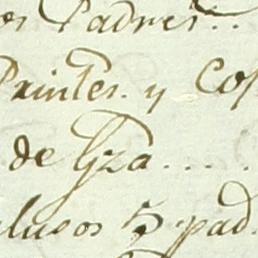 os Padres..
Printes. y Cof
de Gza....
clusos 5 pad.